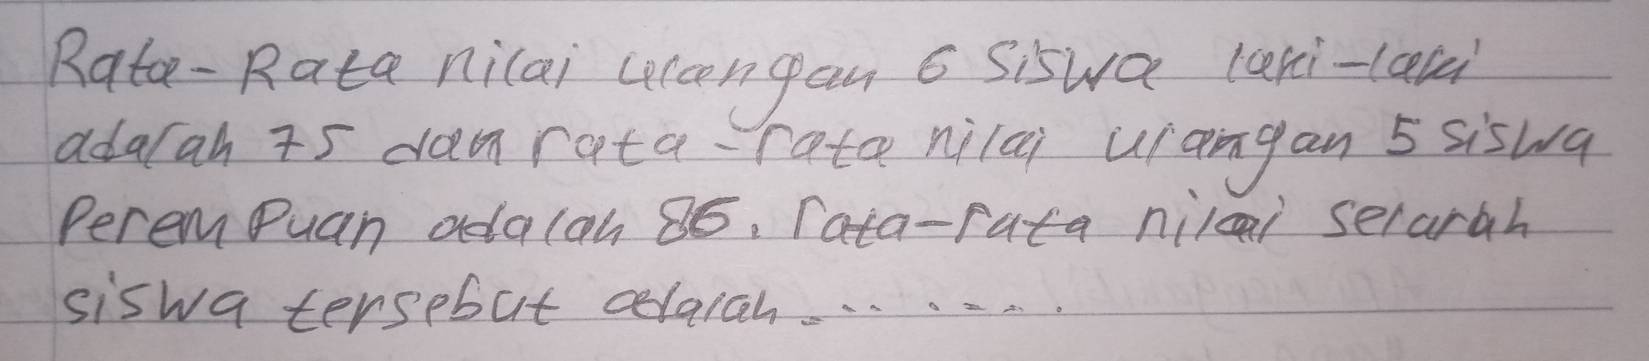 Rata-Rata nilai ulangan 6 siswa laki-laki
adalah 75 dan rata-rata nilai ulangan 5 siswa
Perempuan adalah 86. rata-rata nilai selurah
siswa tersebut adalah.........